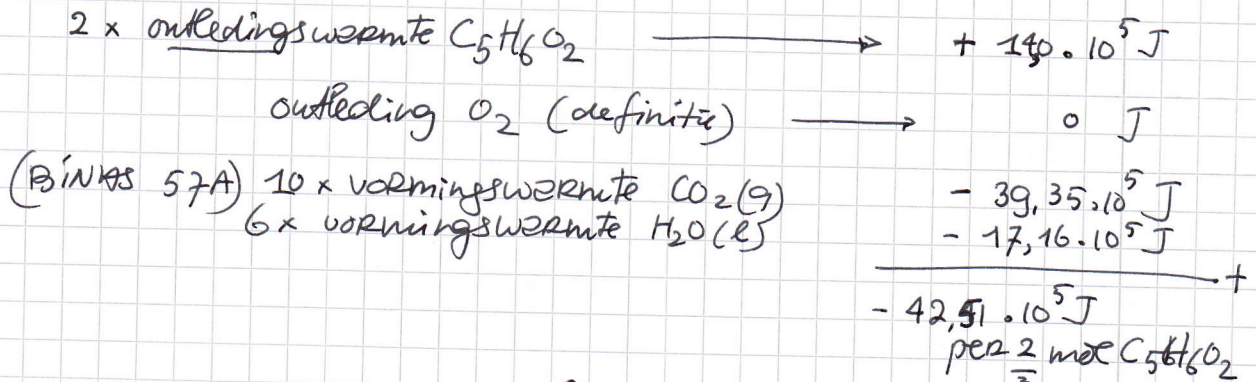 2 x ontledingswarmte C₅H₆O₂ ⟶ + 14,0 . 10⁵ J
ontleding O₂ (definitie) ⟶ 0 J
(BINAS 57A) 10 x vormingswarmte CO₂(g) - 39,35.10⁵ J
6 x vormingswarmte H₂O(l) - 17,16.10⁵ J
+
- 42,51 . 10⁵ J
per 2 mol C₅H₆O₂